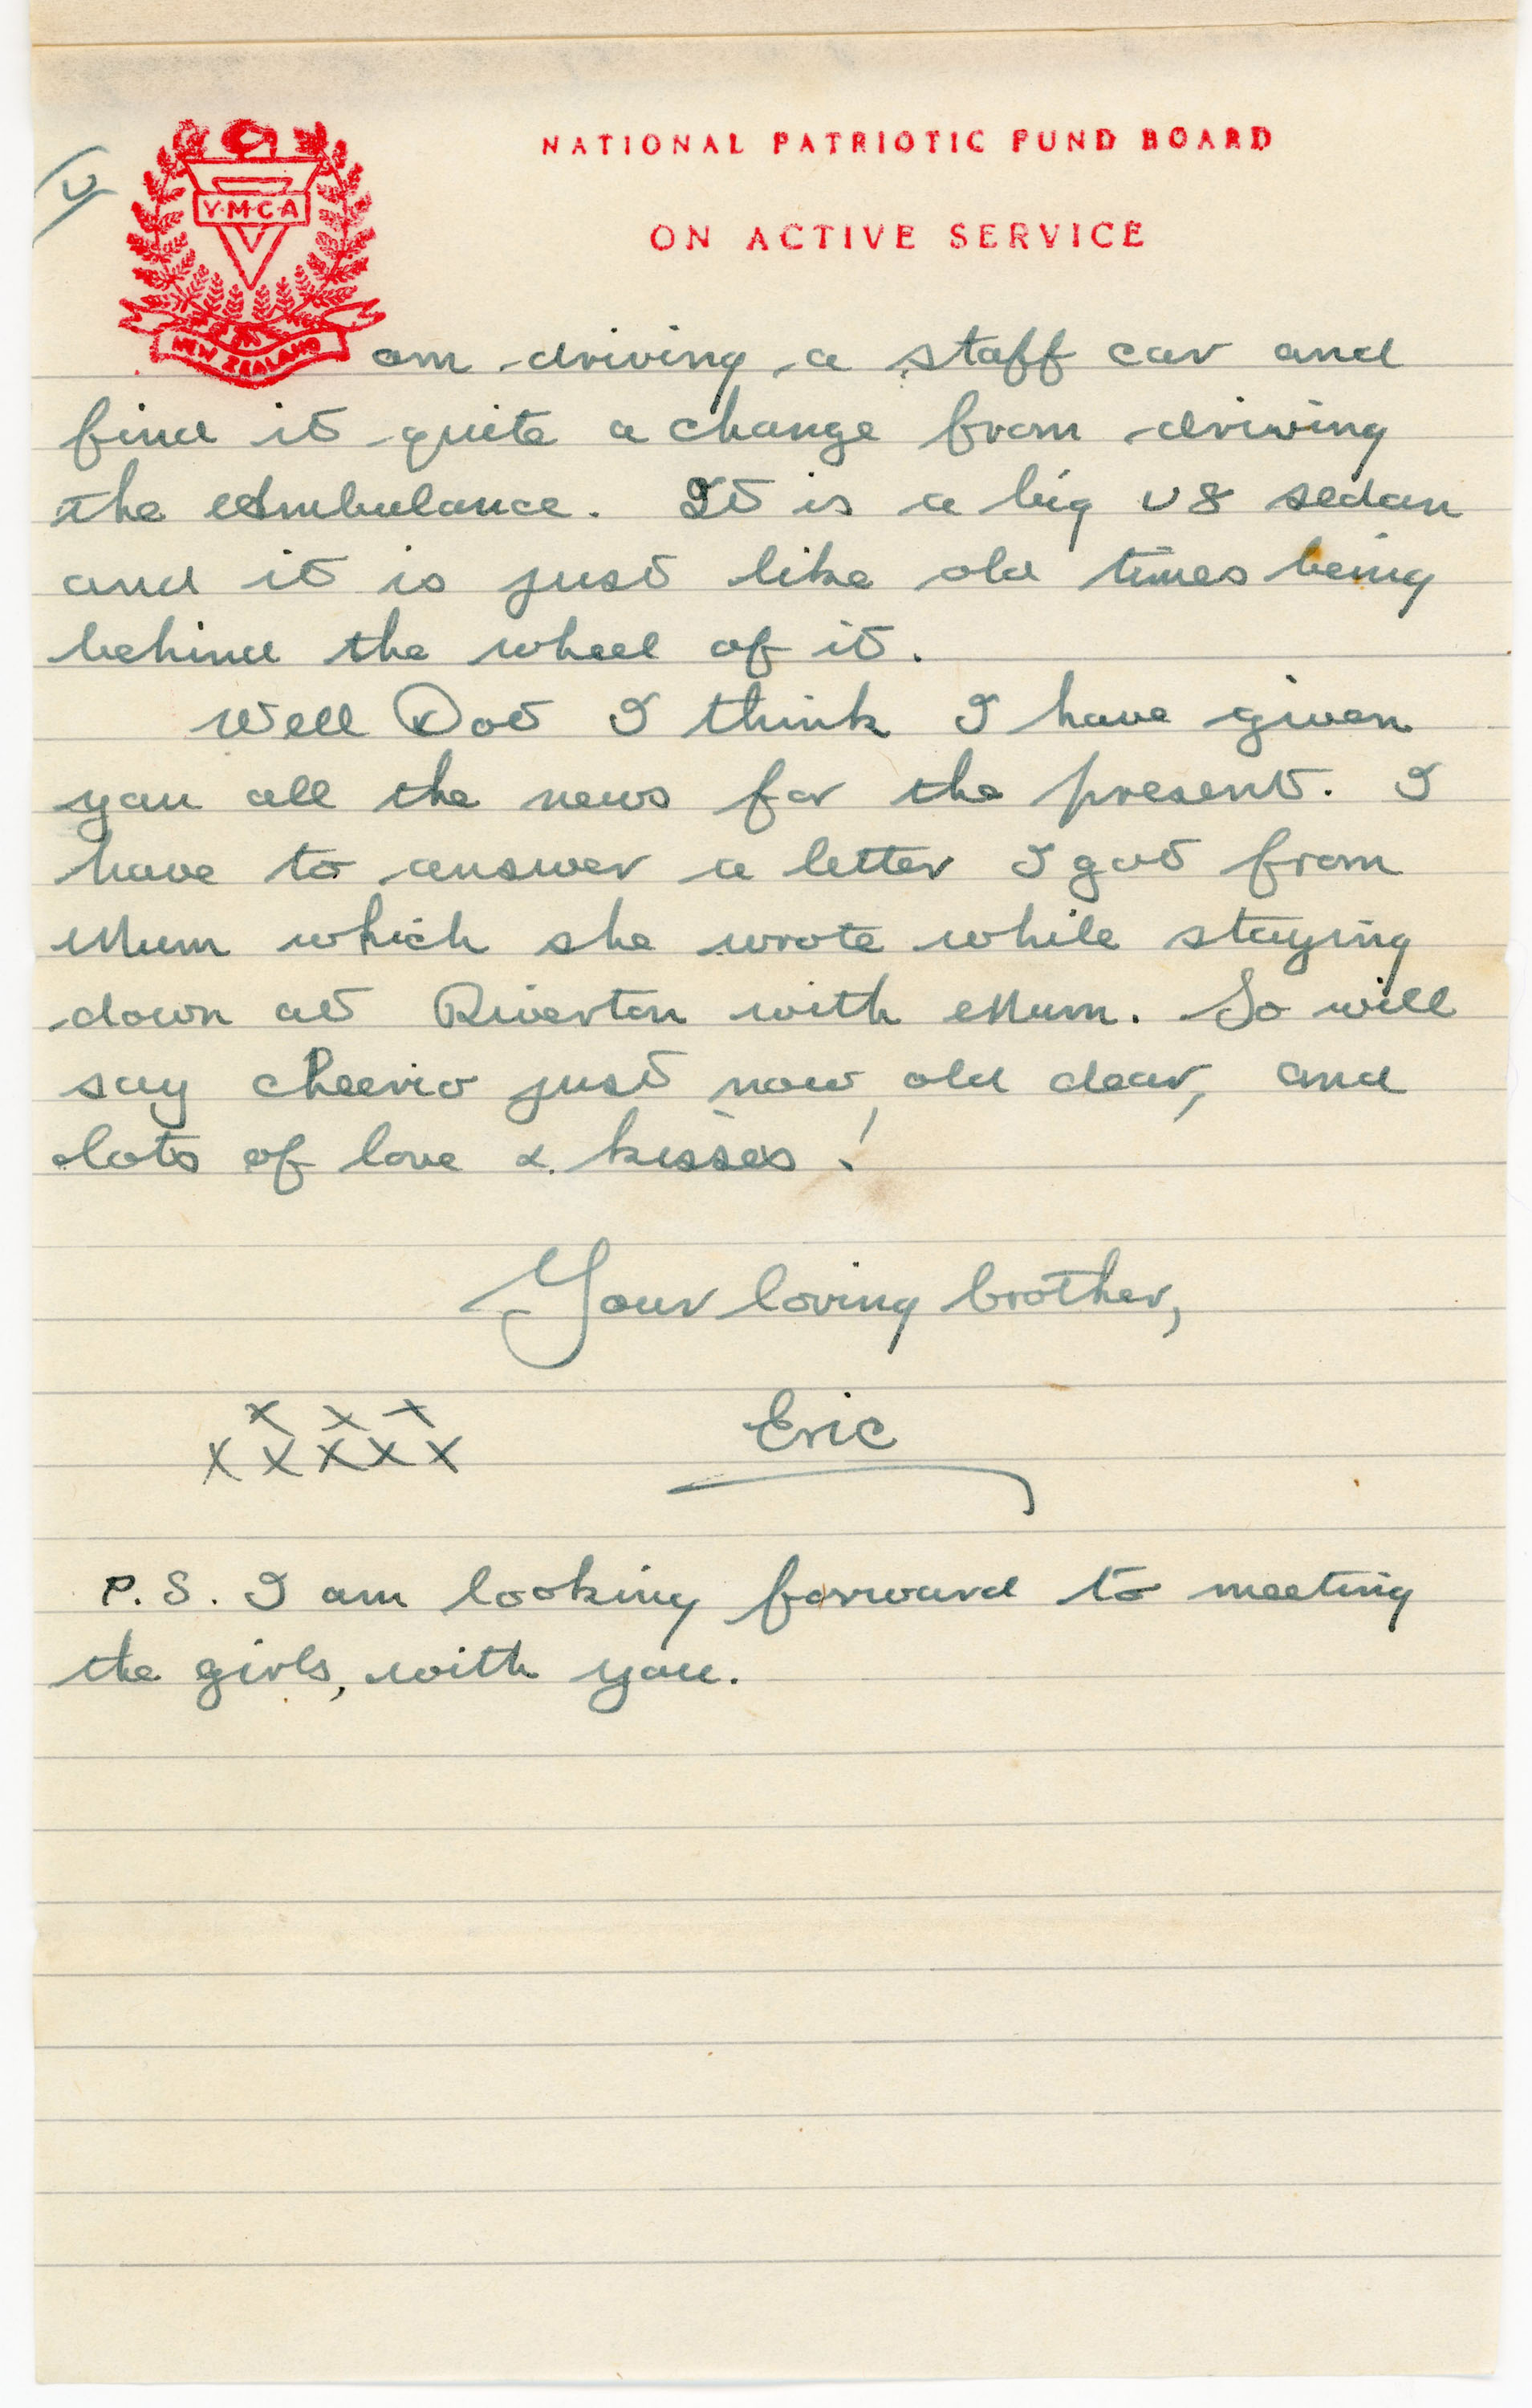 NATIONAL PATRIOTIC FUND BOARD
ON ACTIVE SERVICE
Y.M.C.A
NEW ZEALAND
am driving a staff car and
find it quite a change from driving
the Ambulance. It is a big V8 sedan
and it is just like old times being
behind the wheel of it.
Well Dot I think I have given
you all the news for the present. I
have to answer a letter I got from
Mum which she wrote while staying
down at Riverton with Mum. So will
say cheerio just now old dear, and
lots of love & kisses!
Your loving brother,
x x x
x x x x x
Eric
P.S. I am looking forward to meeting
the girls, with you.